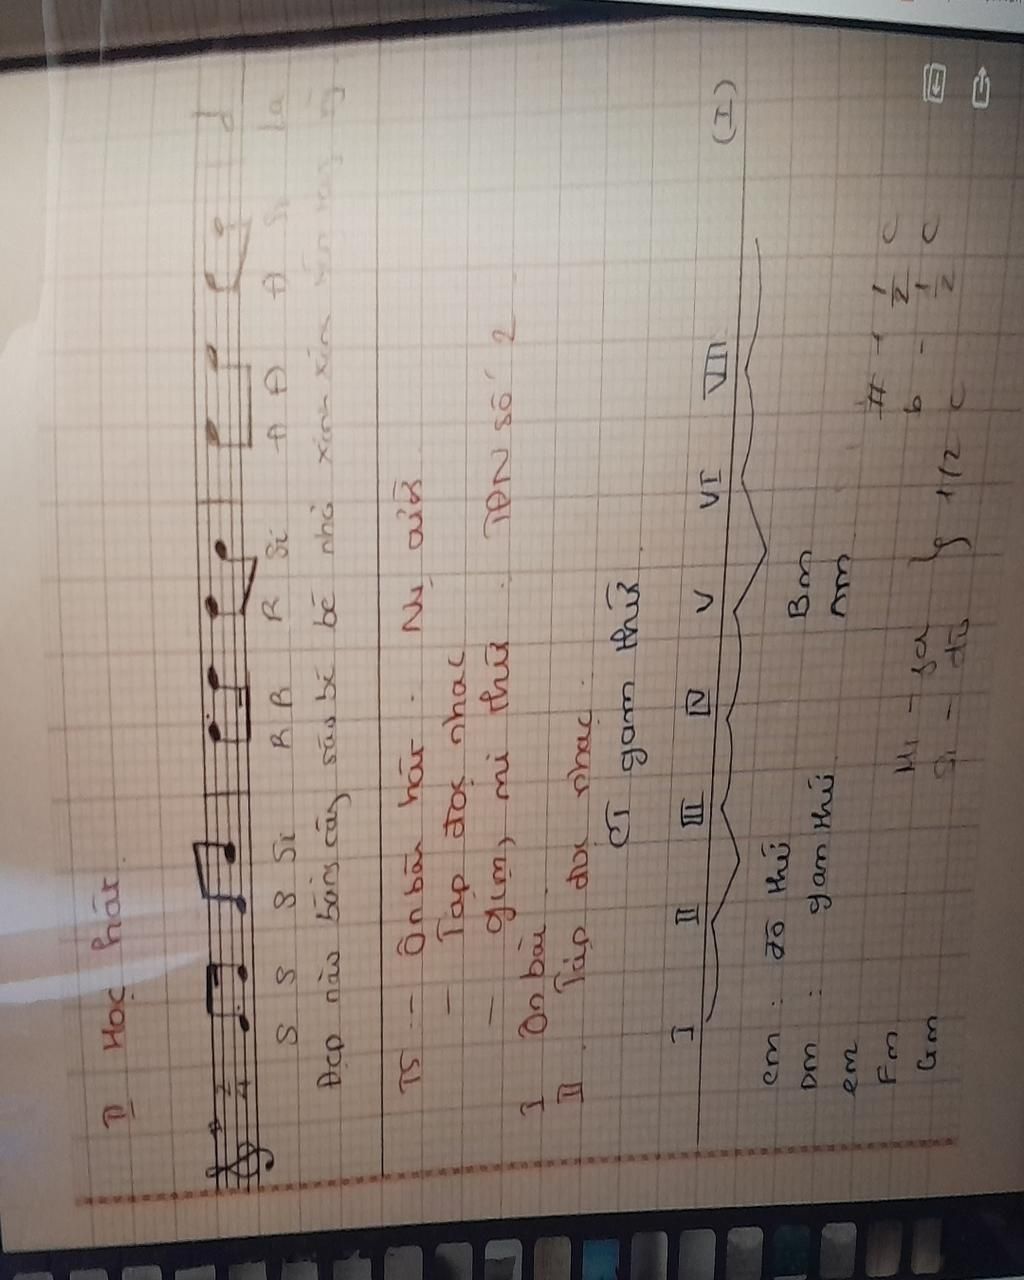 II Học hát
2
4
S S S S Si R R R Si Đ Đ Đ Si La
Đẹp nào bằng cây sáo bé bé nhỏ xinh xinh
T5 - Ôn bài hát. Nụ cười
- Tập đọc nhạc
- Giọng mi thứ. TĐN số 2
I Ôn bài
II. Tập đọc nhạc.
CT gam thứ
I II III IV V VI VII (I)
Cm : đô thứ Bm
Dm : gam thứ Am
em
Fm # - 1/2 C
Gm b - 1/2 C
Mi - fa
Si - đô } 1/2 C